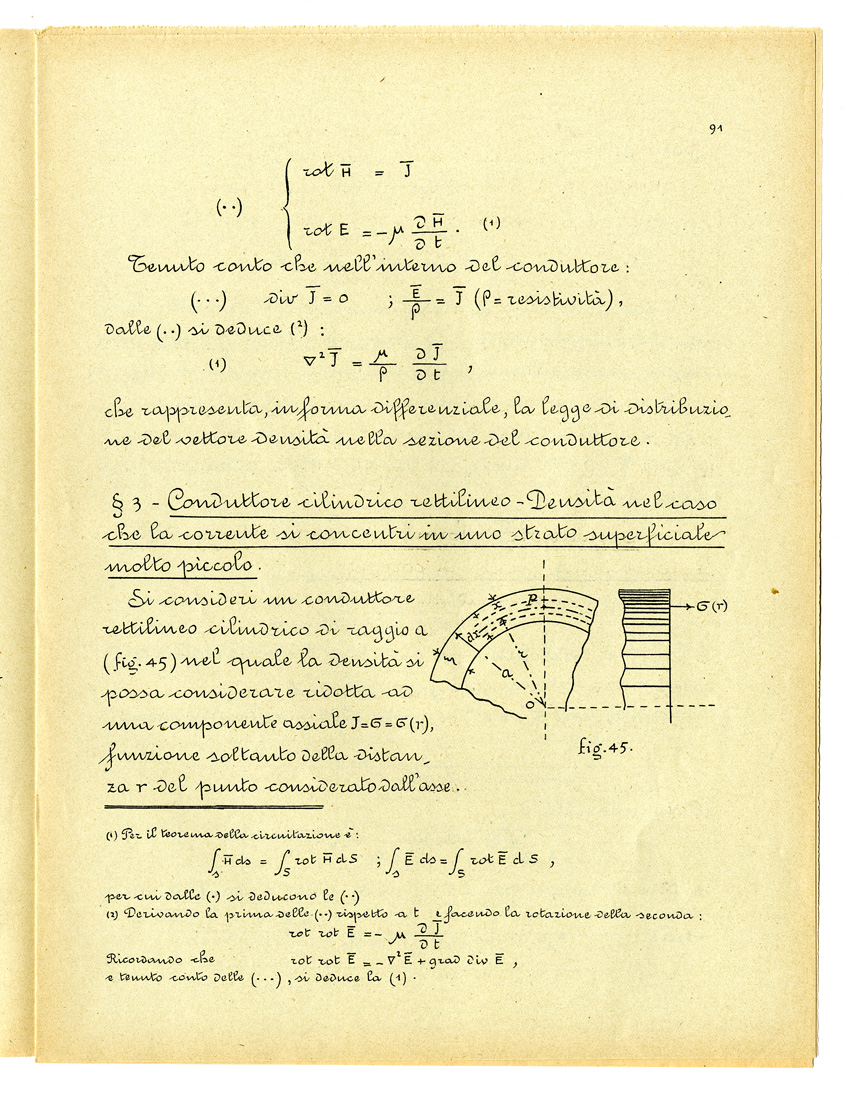 91
(··) { rot H̄ = J̄
rot E = -μ ∂H̄/∂t . (1)
Tenuto conto che nell'interno del conduttore :
(···) div J̄ = 0 ; Ē/ρ = J̄ (ρ = resistività),
dalle (··) si deduce (²) :
(1) ∇² J̄ = μ/ρ ∂J̄/∂t ,
che rappresenta, in forma differenziale, la legge di distribuzio_
ne del vettore densità nella sezione del conduttore .
§ 3 - Conduttore cilindrico rettilineo - Densità nel caso
che la corrente si concentri in uno strato superficiale
molto piccolo .
Si consideri un conduttore
rettilineo cilindrico di raggio a
(fig. 45) nel quale la densità si
possa considerare ridotta ad
una componente assiale J=σ=σ(r),
funzione soltanto della distan_
za r del punto considerato dall'asse .
x P
dx
r
a
O
σ(r)
fig. 45.
(1) Per il teorema della circuitazione è :
∫s H̄ ds = ∫S rot H̄ dS ; ∫s Ē ds = ∫S rot Ē dS ,
per cui dalle (·) si deducono le (··)
(2) Derivando la prima delle (··) rispetto a t e facendo la rotazione della seconda :
rot rot Ē = - μ ∂J̄/∂t
Ricordando che rot rot Ē = - ∇² Ē + grad div Ē ,
e tenuto conto delle (···) , si deduce la (1) .